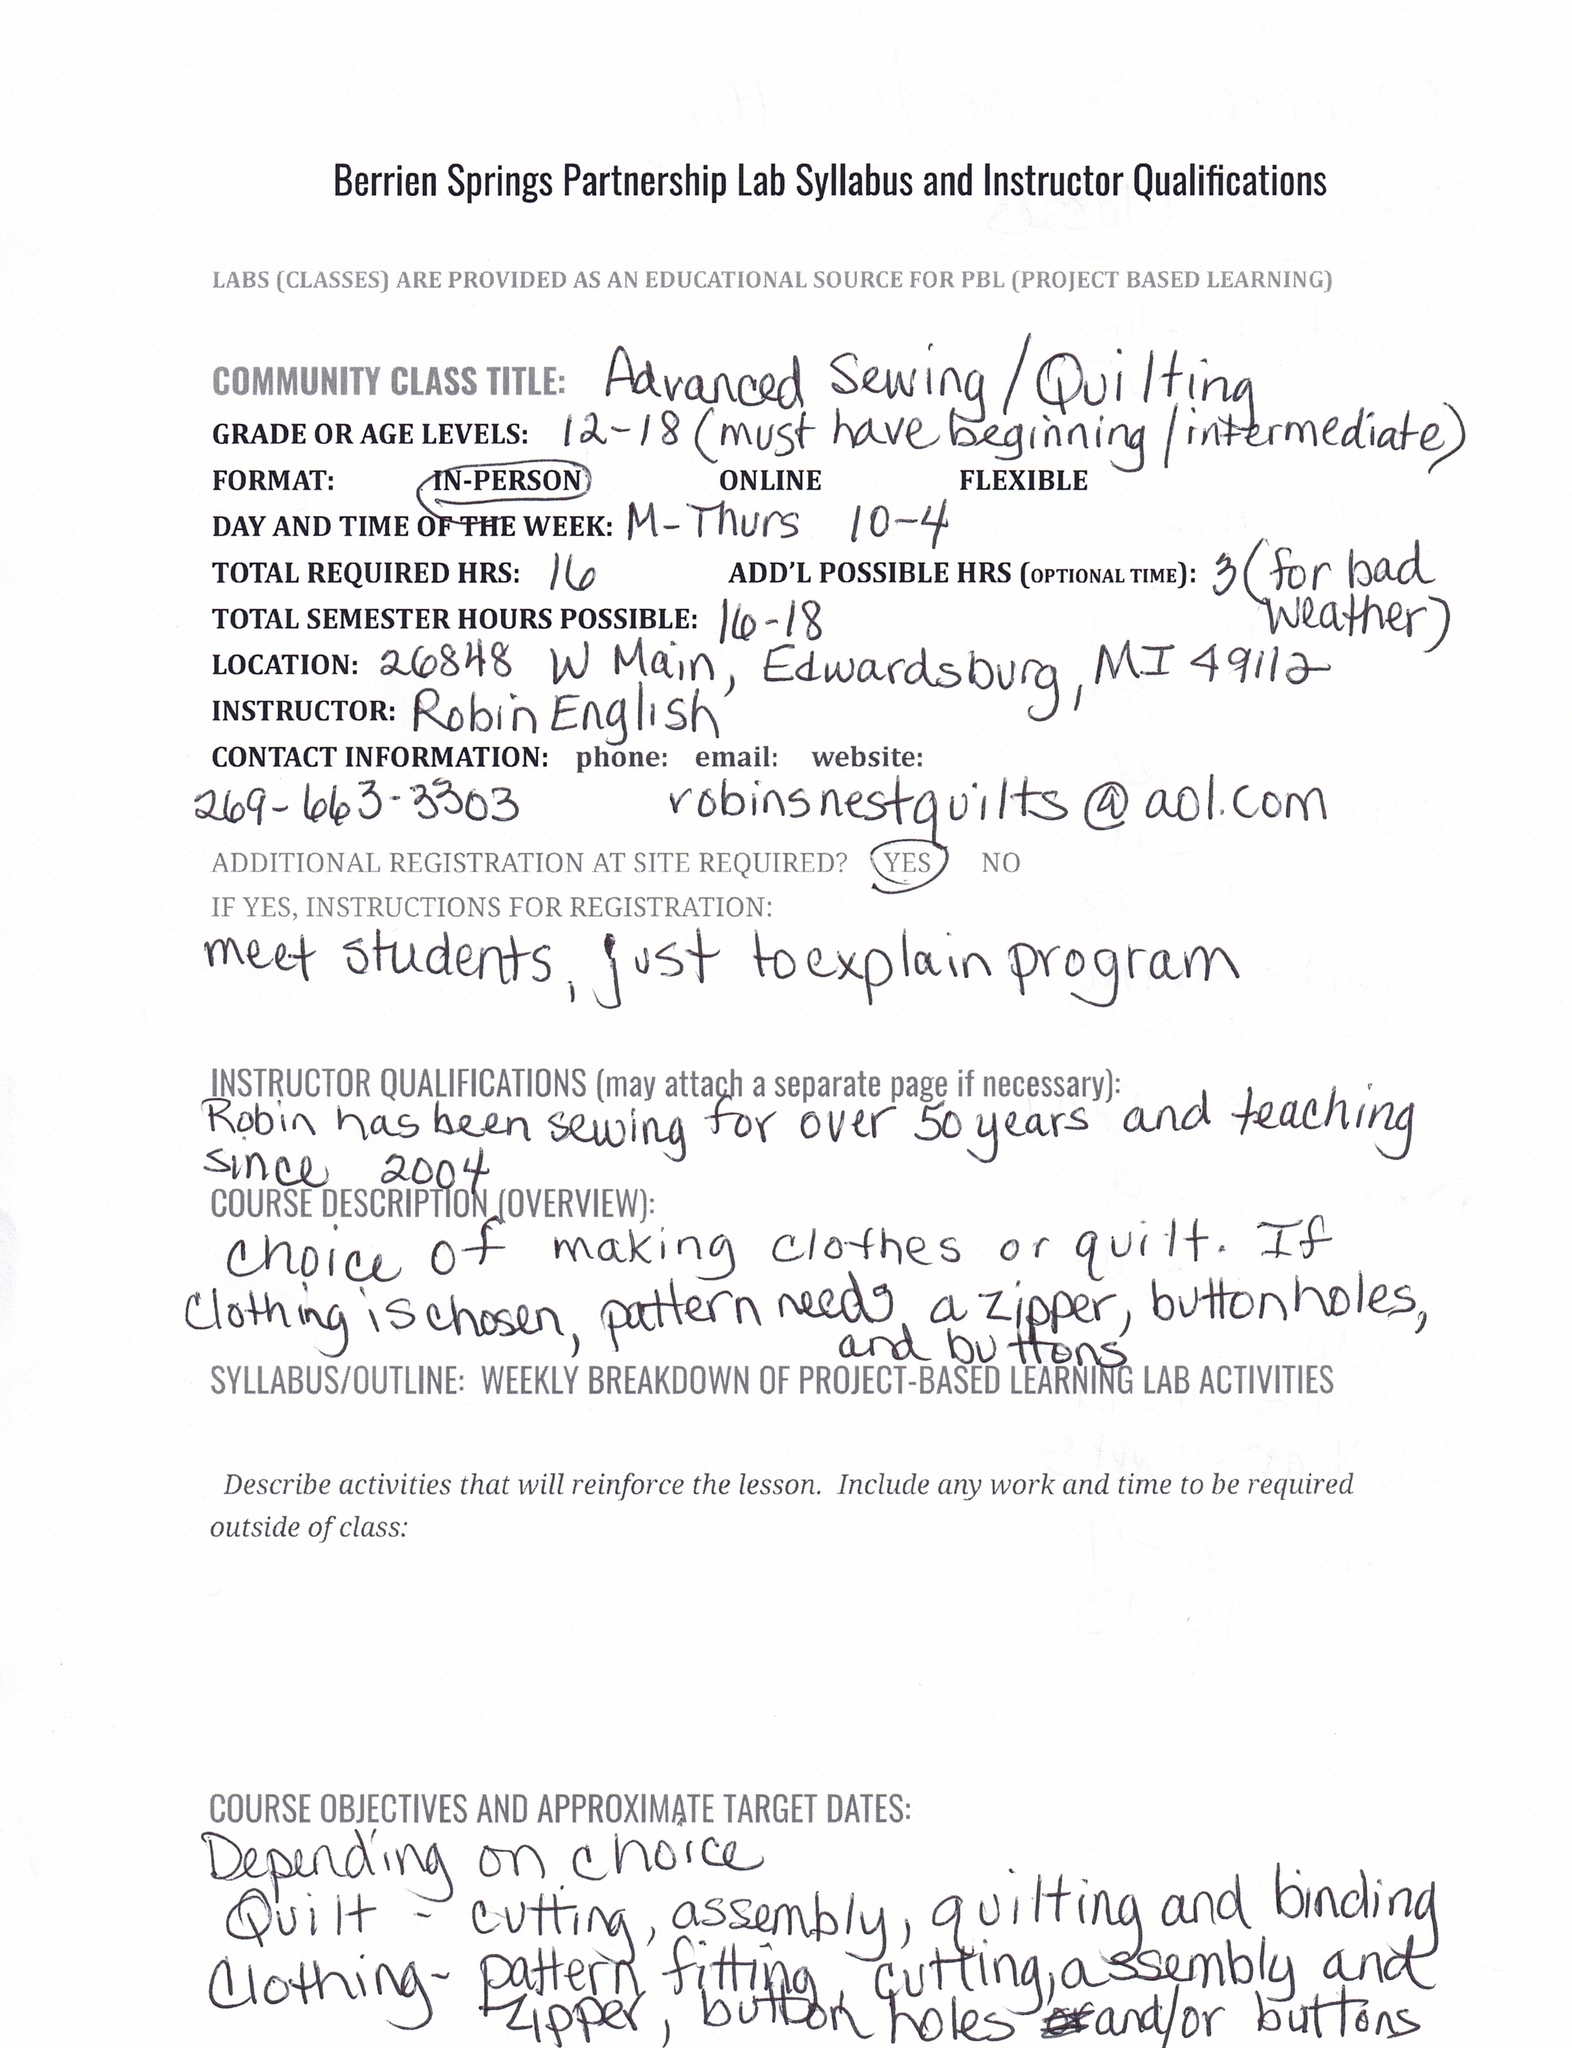 Berrien Springs Partnership Lab Syllabus and Instructor Qualifications
LABS (CLASSES) ARE PROVIDED AS AN EDUCATIONAL SOURCE FOR PBL (PROJECT BASED LEARNING)
COMMUNITY CLASS TITLE: Advanced Sewing/Quilting
GRADE OR AGE LEVELS: 12-18 (must have beginning/intermediate)
FORMAT: IN-PERSON ONLINE FLEXIBLE
DAY AND TIME OF THE WEEK: M-Thurs 10-4
TOTAL REQUIRED HRS: 16 ADD'L POSSIBLE HRS (OPTIONAL TIME): 3 (for bad
weather)
TOTAL SEMESTER HOURS POSSIBLE: 16-18
LOCATION: 26848 W Main, Edwardsburg, MI 49112
INSTRUCTOR: Robin English
CONTACT INFORMATION: phone: email: website:
269-663-3303 robinsnestquilts@aol.com
ADDITIONAL REGISTRATION AT SITE REQUIRED? YES NO
IF YES, INSTRUCTIONS FOR REGISTRATION:
meet students, just to explain program
INSTRUCTOR QUALIFICATIONS (may attach a separate page if necessary):
Robin has been sewing for over 50 years and teaching
since 2004
COURSE DESCRIPTION (OVERVIEW):
choice of making clothes or quilt. If
clothing is chosen, pattern needs a zipper, buttonholes,
and buttons
SYLLABUS/OUTLINE: WEEKLY BREAKDOWN OF PROJECT-BASED LEARNING LAB ACTIVITIES
Describe activities that will reinforce the lesson. Include any work and time to be required
outside of class:
COURSE OBJECTIVES AND APPROXIMATE TARGET DATES:
Depending on choice
Quilt - cutting, assembly, quilting and binding
Clothing - pattern fitting, cutting, assembly and
zipper, button holes and/or buttons